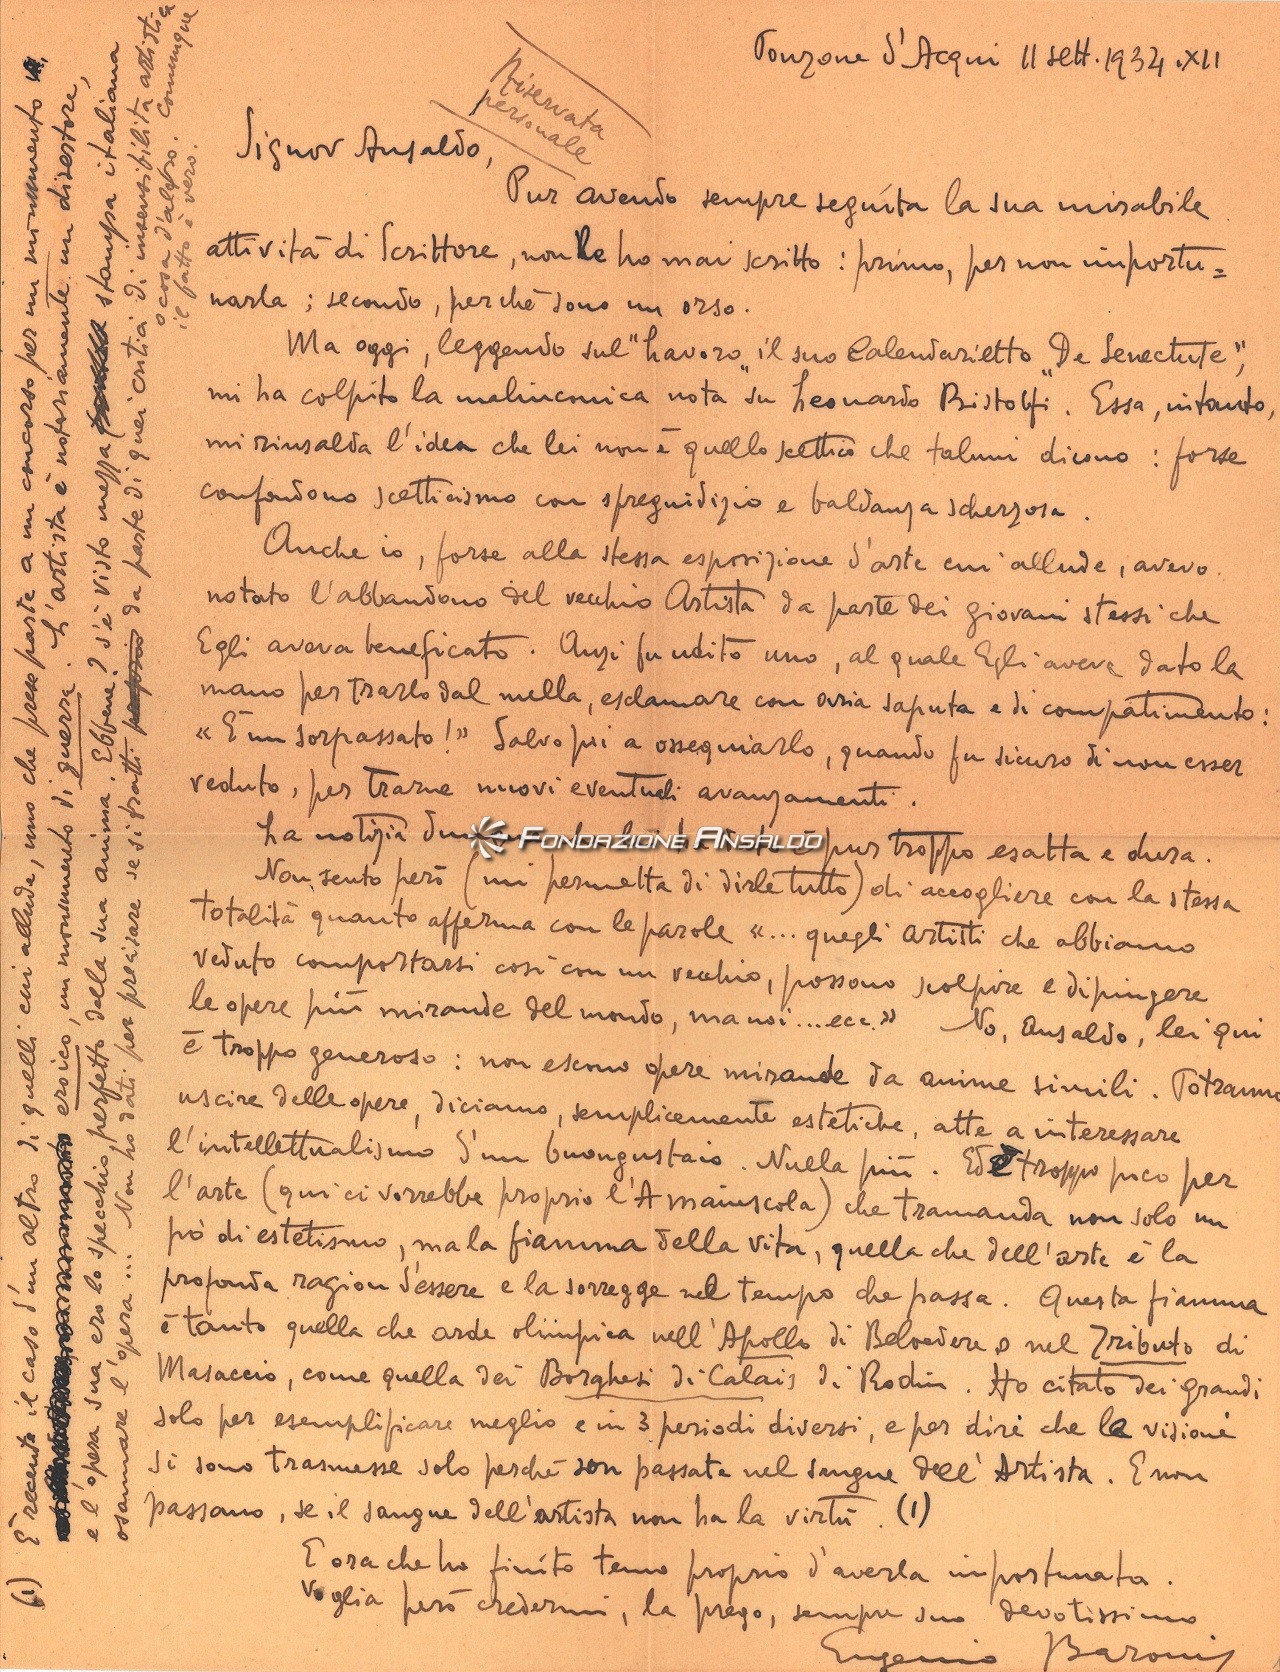 Ponzone d'Acqui 11 sett. 1934.XII
Riservata
personale
Signor Ansaldo,
Pur avendo sempre seguíta la sua mirabile
attività di Scrittore, non Le ho mai scritto: primo, per non importu=
narla; secondo, perché sono un orso.
Ma oggi, leggendo sul "Lavoro" il suo Calendarietto "De Senectute",
mi ha colpito la malinconica nota su Leonardo Bistolfi. Essa, intanto,
mi rinsalda l'idea che lei non è quello scettico che taluni dicono: forse
confondono scetticismo con spregiudizio e baldanza scherzosa.
Anche io, forse alla stessa esposizione d'arte cui allude, avevo
notato l'abbandono del vecchio Artista da parte dei giovani stessi che
Egli aveva beneficato. Anzi fu udito uno, al quale Egli aveva dato la
mano per trarlo dal nulla, esclamare con aria saputa e di compatimento:
«È un sorpassato!» Salvo poi a ossequiarlo, quando fu sicuro di non esser
veduto, per trarne nuovi eventuali avanzamenti.
La notizia è pur troppo esatta e dura.
FONDAZIONE ANSALDO
Non sento però (mi permetta di dirle tutto) di accogliere con la stessa
totalità quanto afferma con le parole «... quegli artisti che abbiamo
veduto comportarsi così con un vecchio, possono scolpire e dipingere
le opere più mirande del mondo, ma noi ... ecc.» No, Ansaldo, lei qui
è troppo generoso: non escono opere mirande da anime simili. Potranno
uscire delle opere, diciamo, semplicemente estetiche, atte a interessare
l'intellettualismo d'un buongustaio. Nulla più. Ed è troppo poco per
l'arte (qui ci vorrebbe proprio l'A maiuscola) che tramanda non solo un
pò di estetismo, ma la fiamma della vita, quella che dell'arte è la
profonda ragion d'essere e la sorregge nel tempo che passa. Questa fiamma
è tanto quella che arde olimpica nell'Apollo di Belvedere o nel Tributo di
Masaccio, come quella dei Borghesi di Calais di Rodin. Ho citato dei grandi
solo per esemplificare meglio e in 3 periodi diversi, e per dire che le visioni
si sono trasmesse solo perché son passate nel sangue dell'Artista. E non
passano, se il sangue dell'artista non ha la virtù. (1)
E ora che ho finito temo proprio d'averla importunata.
Voglia però credermi, la prego, sempre suo devotissimo
Eugenio Baroni
(1) È recente il caso d'un altro di quelli cui allude, uno che prese parte a un concorso per un monumento
eroico, un monumento di guerra. L'artista è notoriamente un disertore,
e l'opera sua era lo specchio perfetto della sua anima. Ebbene? S'è visto mezza stampa italiana
osannare l'opera... Non ho dati per precisare se si tratti da parte di quei critici di insensibilità artistica
o cosa d'altro. Comunque
il fatto è vero.